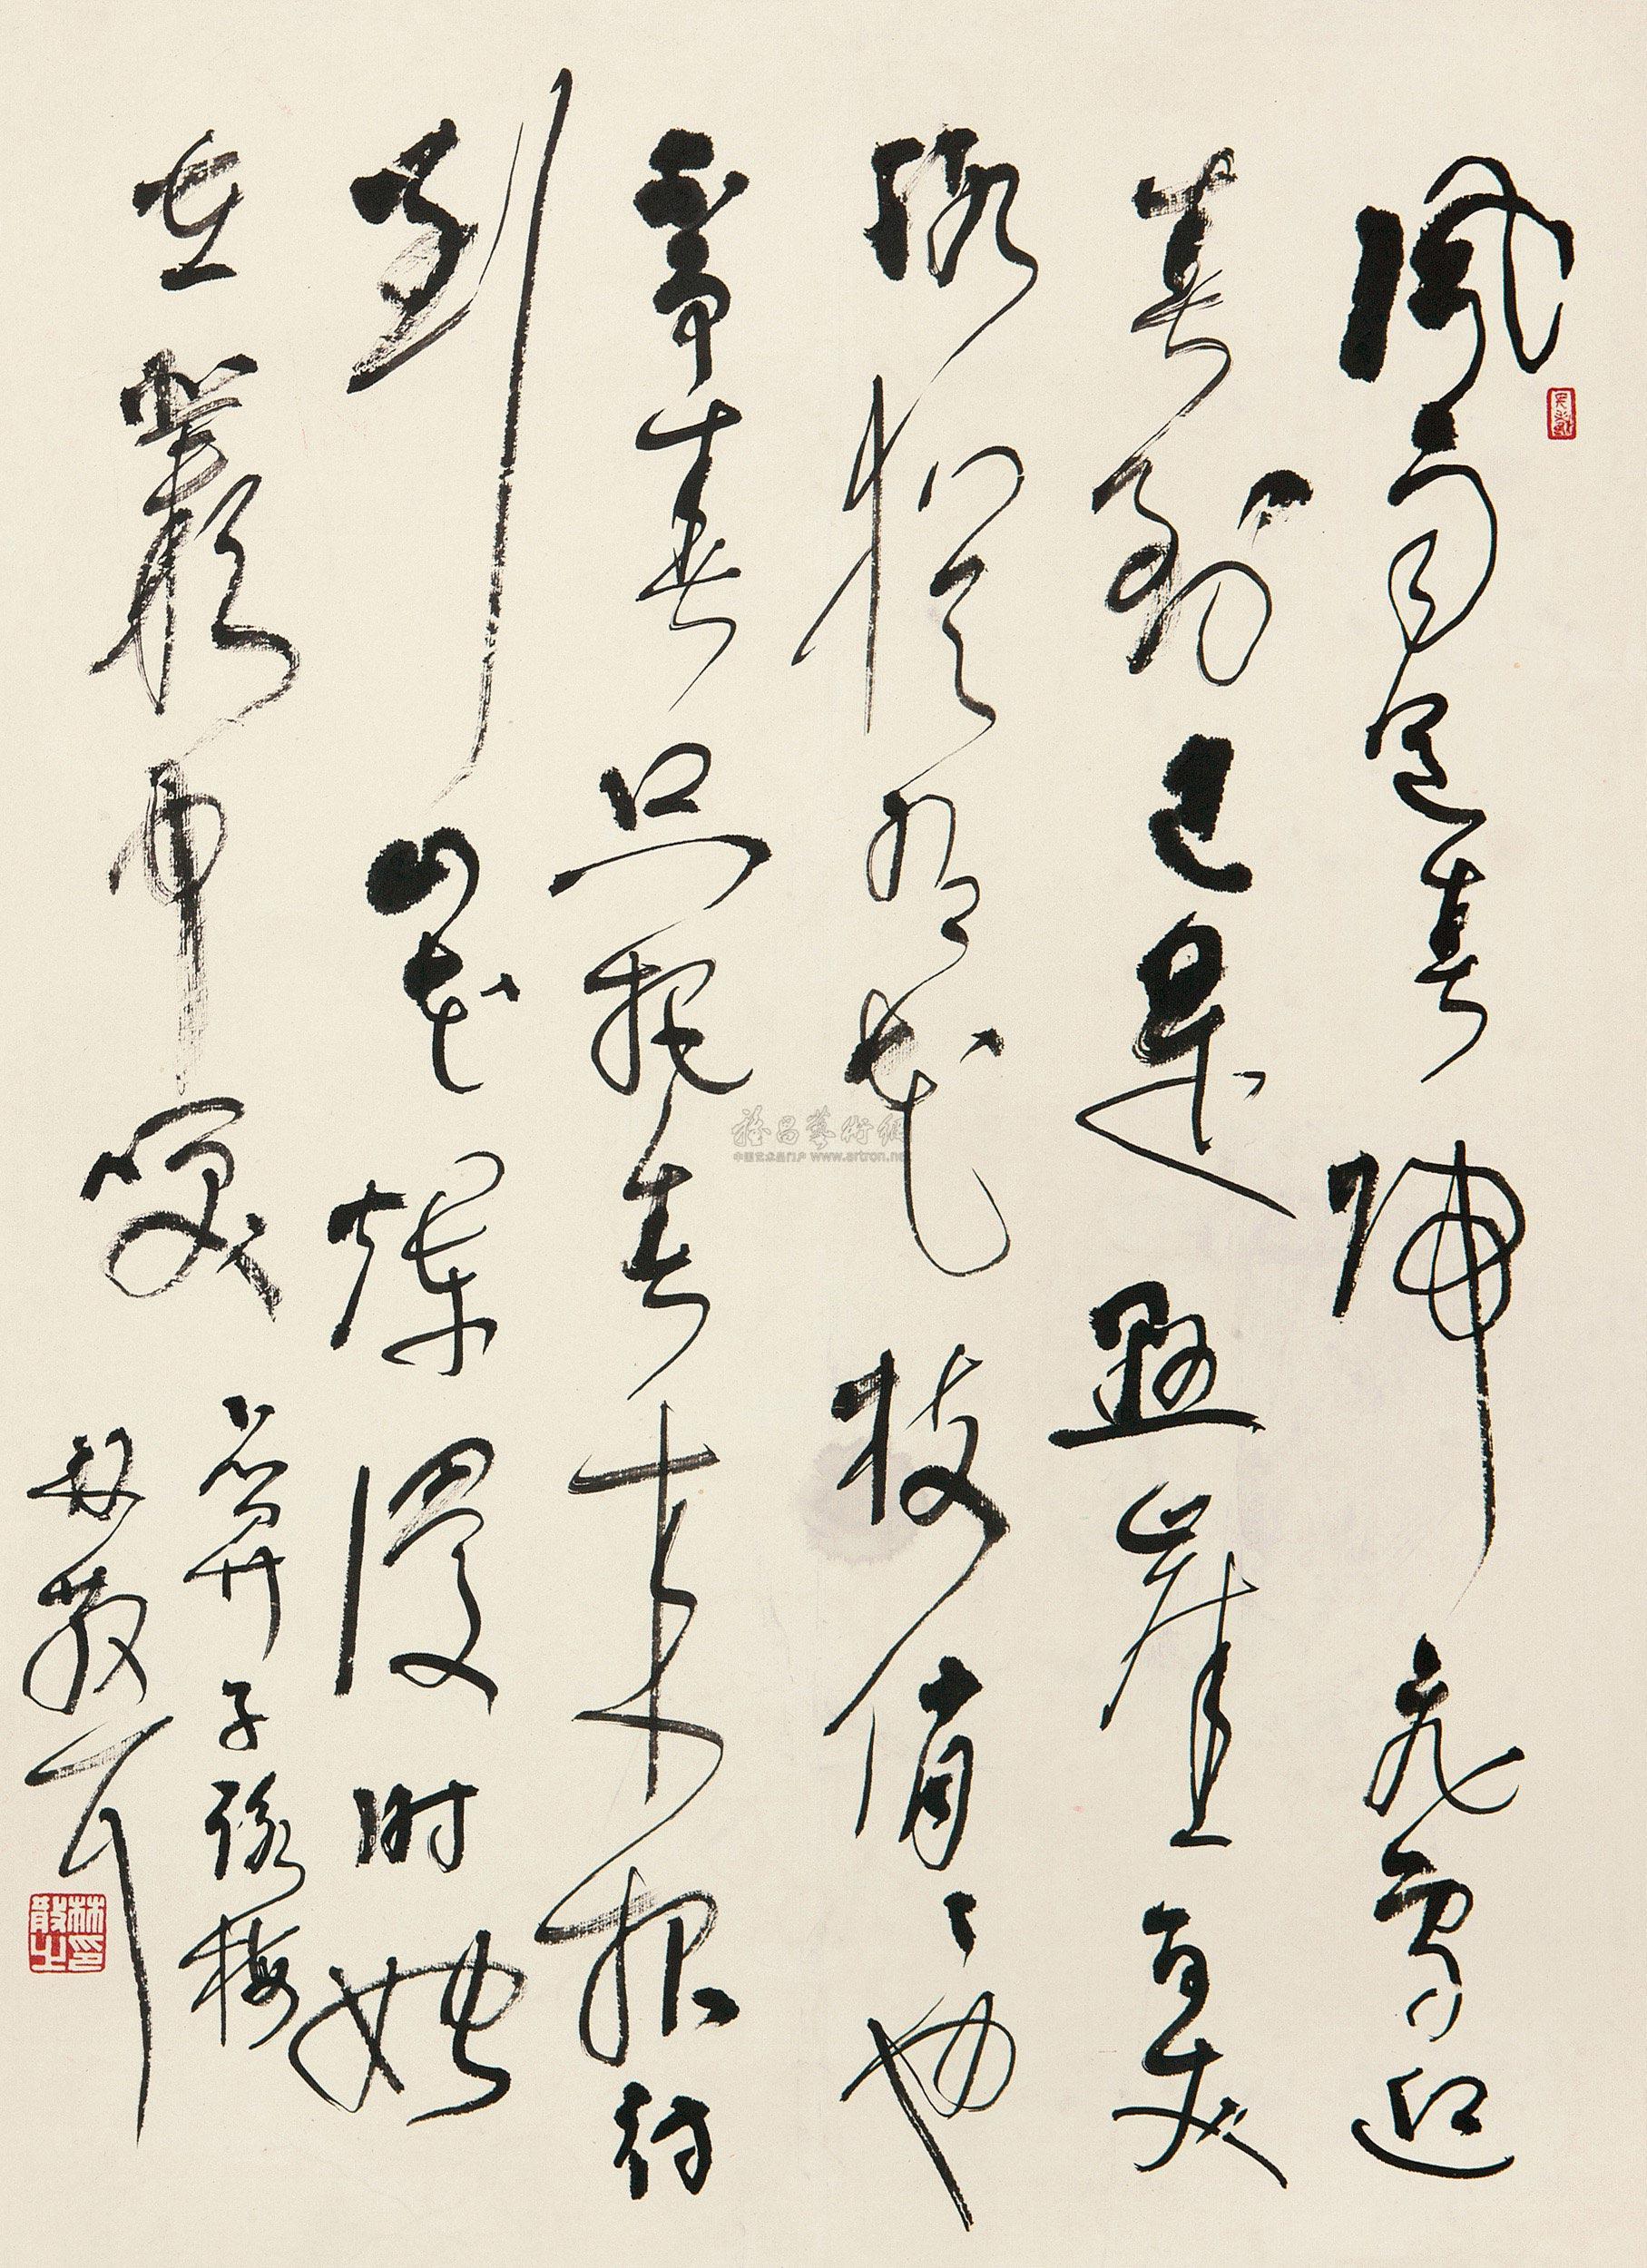 風雨送春歸飛雪迎
春到已是懸崖百丈
冰猶有花枝俏俏也
不爭春只把春來報待
到山花爛漫時她
在叢中笑
卜算子詠梅
林散耳
林散之印
雅昌藝術網
中国艺术品门户 www.artron.net